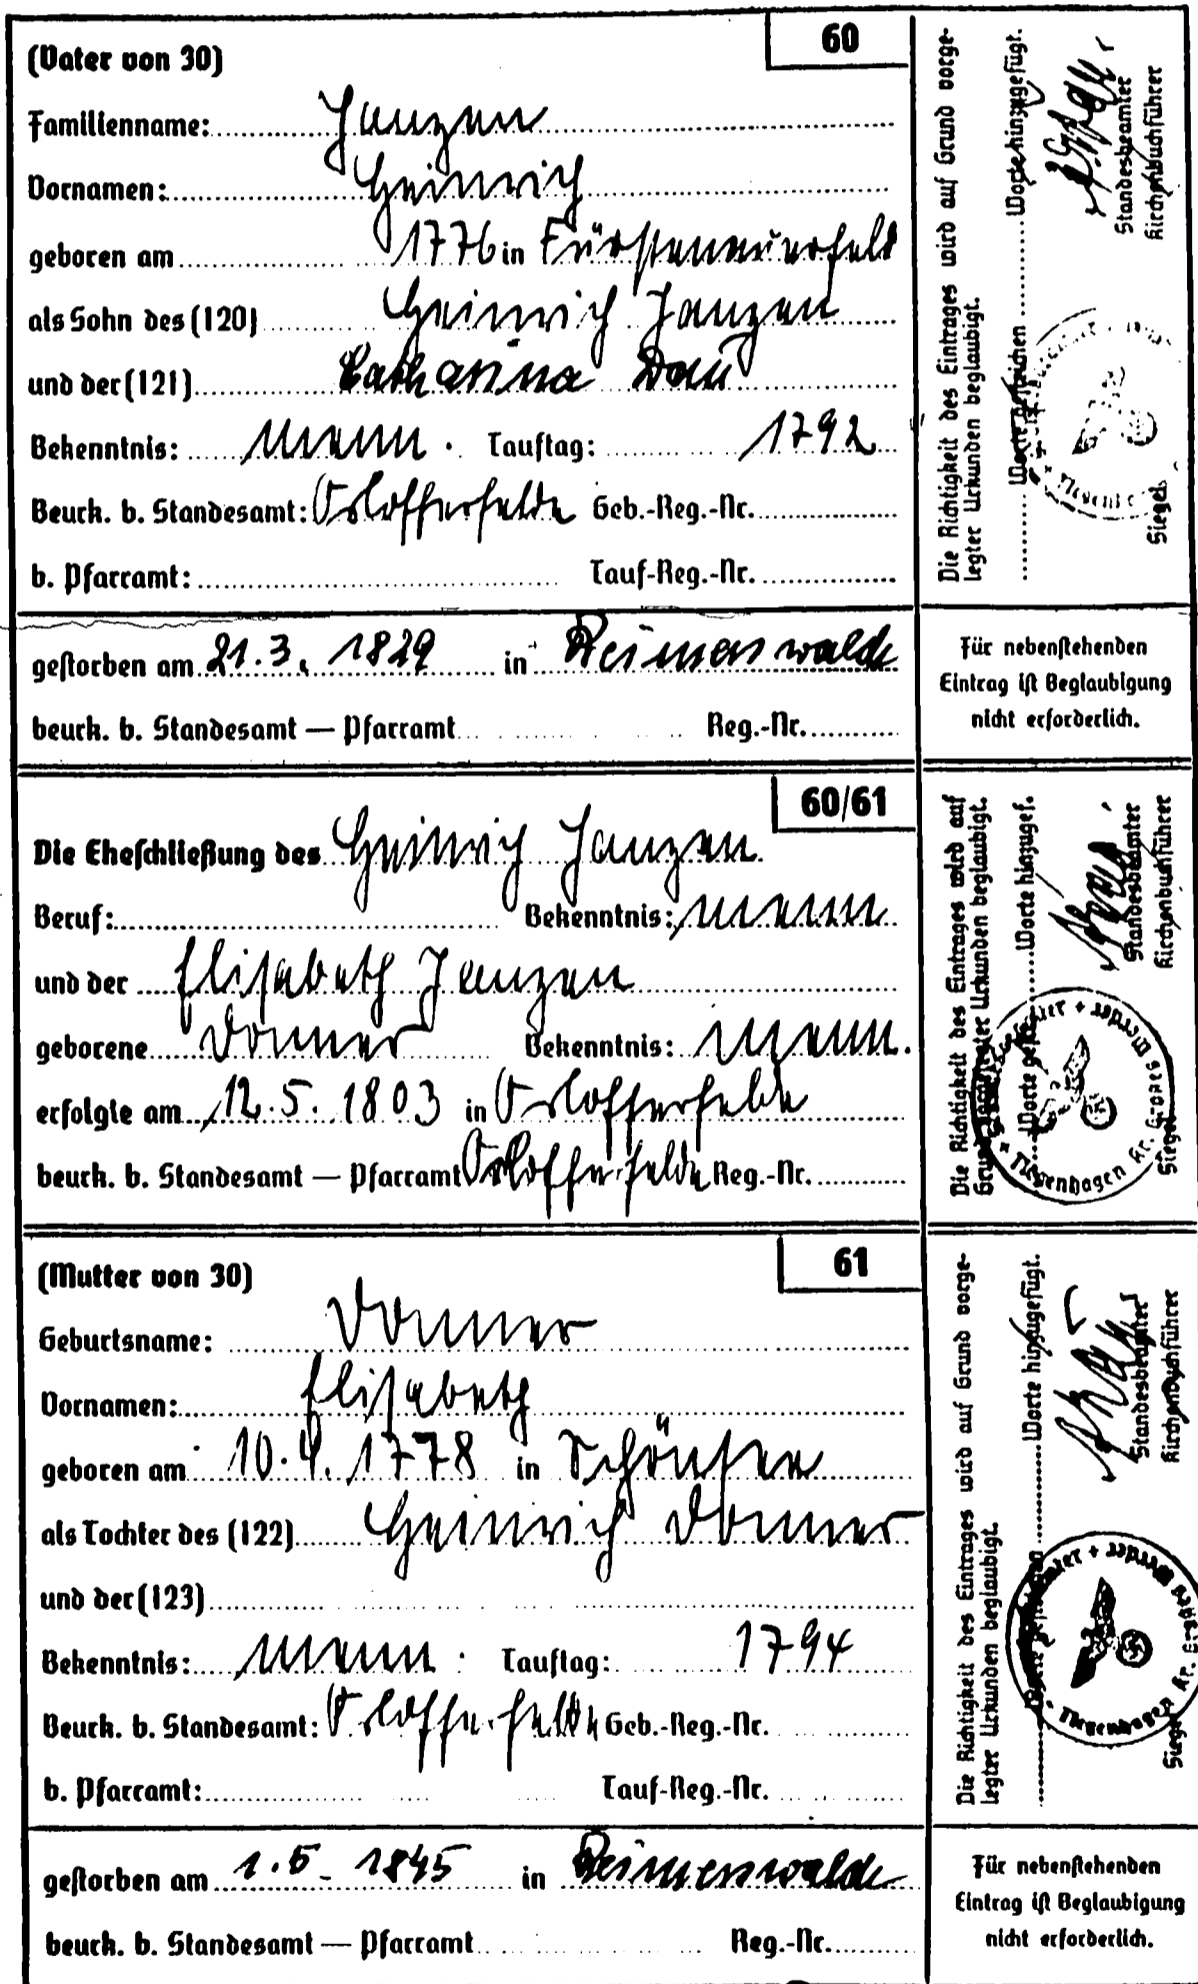 60
(Vater von 30)
Familienname: Janzen
Vornamen: Heinrich
geboren am 1776 in Fürstenauerfeld
als Sohn des (120) Heinrich Janzen
und der (121) Catharina Dau
Bekenntnis: Menn. Tauftag: 1792
Beurk. b. Standesamt: Orlofferfelde Geb.-Reg.-Nr.
b. Pfarramt: Tauf-Reg.-Nr.
gestorben am 21.3. 1829 in Reimerswalde
beurk. b. Standesamt — Pfarramt Reg.-Nr.
Die Richtigkeit des Eintrages wird auf Grund vorge-
legter Urkunden beglaubigt.
Worte gestrichen Worte hinzugefügt.
Standesbeamter
Kirchenbuchführer
Siegel
Für nebenstehenden
Eintrag ist Beglaubigung
nicht erforderlich.
60/61
Die Eheschließung des Heinrich Janzen
Beruf: Bekenntnis: menn
und der Elisabeth Janzen
geborene Donner Bekenntnis: Menn.
erfolgte am 12.5. 1803 in Orlofferfelde
beurk. b. Standesamt — Pfarramt Orlofferfelde Reg.-Nr.
Die Richtigkeit des Eintrages wird auf
Grund vorgelegter Urkunden beglaubigt.
Worte gestr. Worte hinzugef.
Standesbeamter
Kirchenbuchführer
Siegel
Tiegenhagen Kr. Großes Werder
61
(Mutter von 30)
Geburtsname: Donner
Vornamen: Elisabeth
geboren am 10.4. 1778 in Schönsee
als Tochter des (122) Heinrich Donner
und der (123)
Bekenntnis: Menn. Tauftag: 1794
Beurk. b. Standesamt: Orlofferfelde Geb.-Reg.-Nr.
b. Pfarramt: Tauf-Reg.-Nr.
gestorben am 1.5. 1845 in Reimerswalde
beurk. b. Standesamt — Pfarramt Reg.-Nr.
Die Richtigkeit des Eintrages wird auf Grund vorge-
legter Urkunden beglaubigt.
Worte gestrichen Worte hinzugefügt.
Standesbeamter
Kirchenbuchführer
Siegel
Tiegenhagen Kr. Großes Werder
Für nebenstehenden
Eintrag ist Beglaubigung
nicht erforderlich.